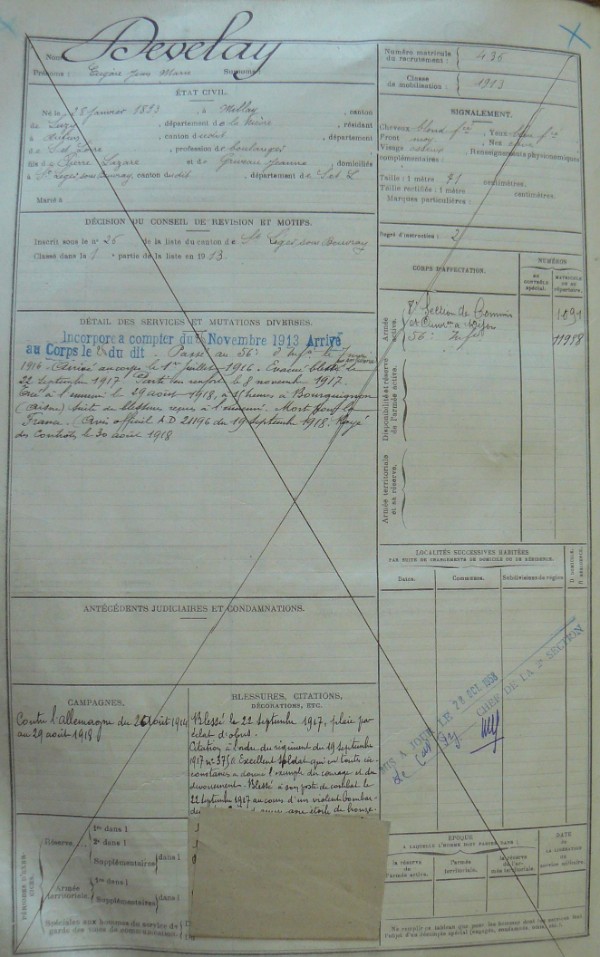 Nom : Develay
Prénoms : Eugène Jean Marie Surnoms :
ÉTAT CIVIL.
Né le 28 Janvier 1893, à Millay, canton
de Luzy, département de la Nièvre, résidant
à Autun, canton d dit, département
de S et Loire, profession de boulanger
fils de Pierre Lazare et de Jeanne, domiciliés
à St Léger sous Beuvray, canton du dit, département de S et L.
Marié à
DÉCISION DU CONSEIL DE RÉVISION ET MOTIFS.
Inscrit sous le n° 26 de la liste du canton de St Léger sous Beuvray
Classé dans la 1 partie de la liste en 1913.
DÉTAIL DES SERVICES ET MUTATIONS DIVERSES.
Incorporé à compter du Novembre 1913 Arrivé
au Corps le du dit. Passé au 56e d'Infie le
1916. Arrivé au corps le 1er Juillet 1916. Evacué blessé le
22 septembre 1917. Parti en renfort le 8 novembre 1917.
Tué à l'ennemi le 29 août 1918, à heures à Bourguignon
(Aisne) suite de blessures reçues à l'ennemi. Mort pour la
France. (Avis officiel AD 21196 du 19 Septembre 1918. Rayé
des contrôles le 30 août 1918
ANTÉCÉDENTS JUDICIAIRES ET CONDAMNATIONS.
CAMPAGNES.
Contre l'Allemagne du 2 Août 1914
au 29 août 1918
BLESSURES, CITATIONS,
DÉCORATIONS, ETC.
Blessé le 22 septembre 1917, plaie par
éclat d'obus.
Citation à l'ordre du régiment du 29 septembre
1917 n° 375. Excellent soldat qui en toutes cir-
constances a donné l'exemple du courage et du
dévouement. Blessé à son poste de combat le
22 Septembre 1917 au cours d'un violent bombar-
étoile de bronze.
PÉRIODES D'EXERCICES.
Réserve.
1re dans l
2e dans l
Supplémentaires dans l
Armée territoriale.
1re dans l
Supplémentaires dans l
Spéciales aux hommes du service de
garde des voies de communication
Numéro matricule
du recrutement : 436
Classe
de mobilisation : 1913
SIGNALEMENT.
Cheveux blond fcé, Yeux bleu fcé
Front moy, Nez
Visage, Renseignements physionomiques
complémentaires :
Taille : 1 mètre 71 centimètres.
Taille rectifiée : 1 mètre centimètres.
Marques particulières :
Degré d'instruction : 2
CORPS D'AFFECTATION.
NUMÉROS
au contrôle spécial.
matricule ou au répertoire.
Armée active.
8e Section de Commis
et Ouvriers à Dijon
1091
56e Infie
11958
Disponibilité et réserve de l'armée active.
Armée territoriale et sa réserve.
LOCALITÉS SUCCESSIVES HABITÉES
PAR SUITE DE CHANGEMENTS DE DOMICILE OU DE RÉSIDENCE.
Dates.
Communes.
Subdivisions de région.
D. domicile.
R. résidence.
MIS A JOUR LE 28 OCT. 1938
CHEF DE LA 2e SECTION
ÉPOQUE
À LAQUELLE L'HOMME DOIT PASSER DANS :
la réserve de l'armée active.
l'armée territoriale.
la réserve de l'armée territoriale.
DATE
DE LA LIBÉRATION
du service militaire.